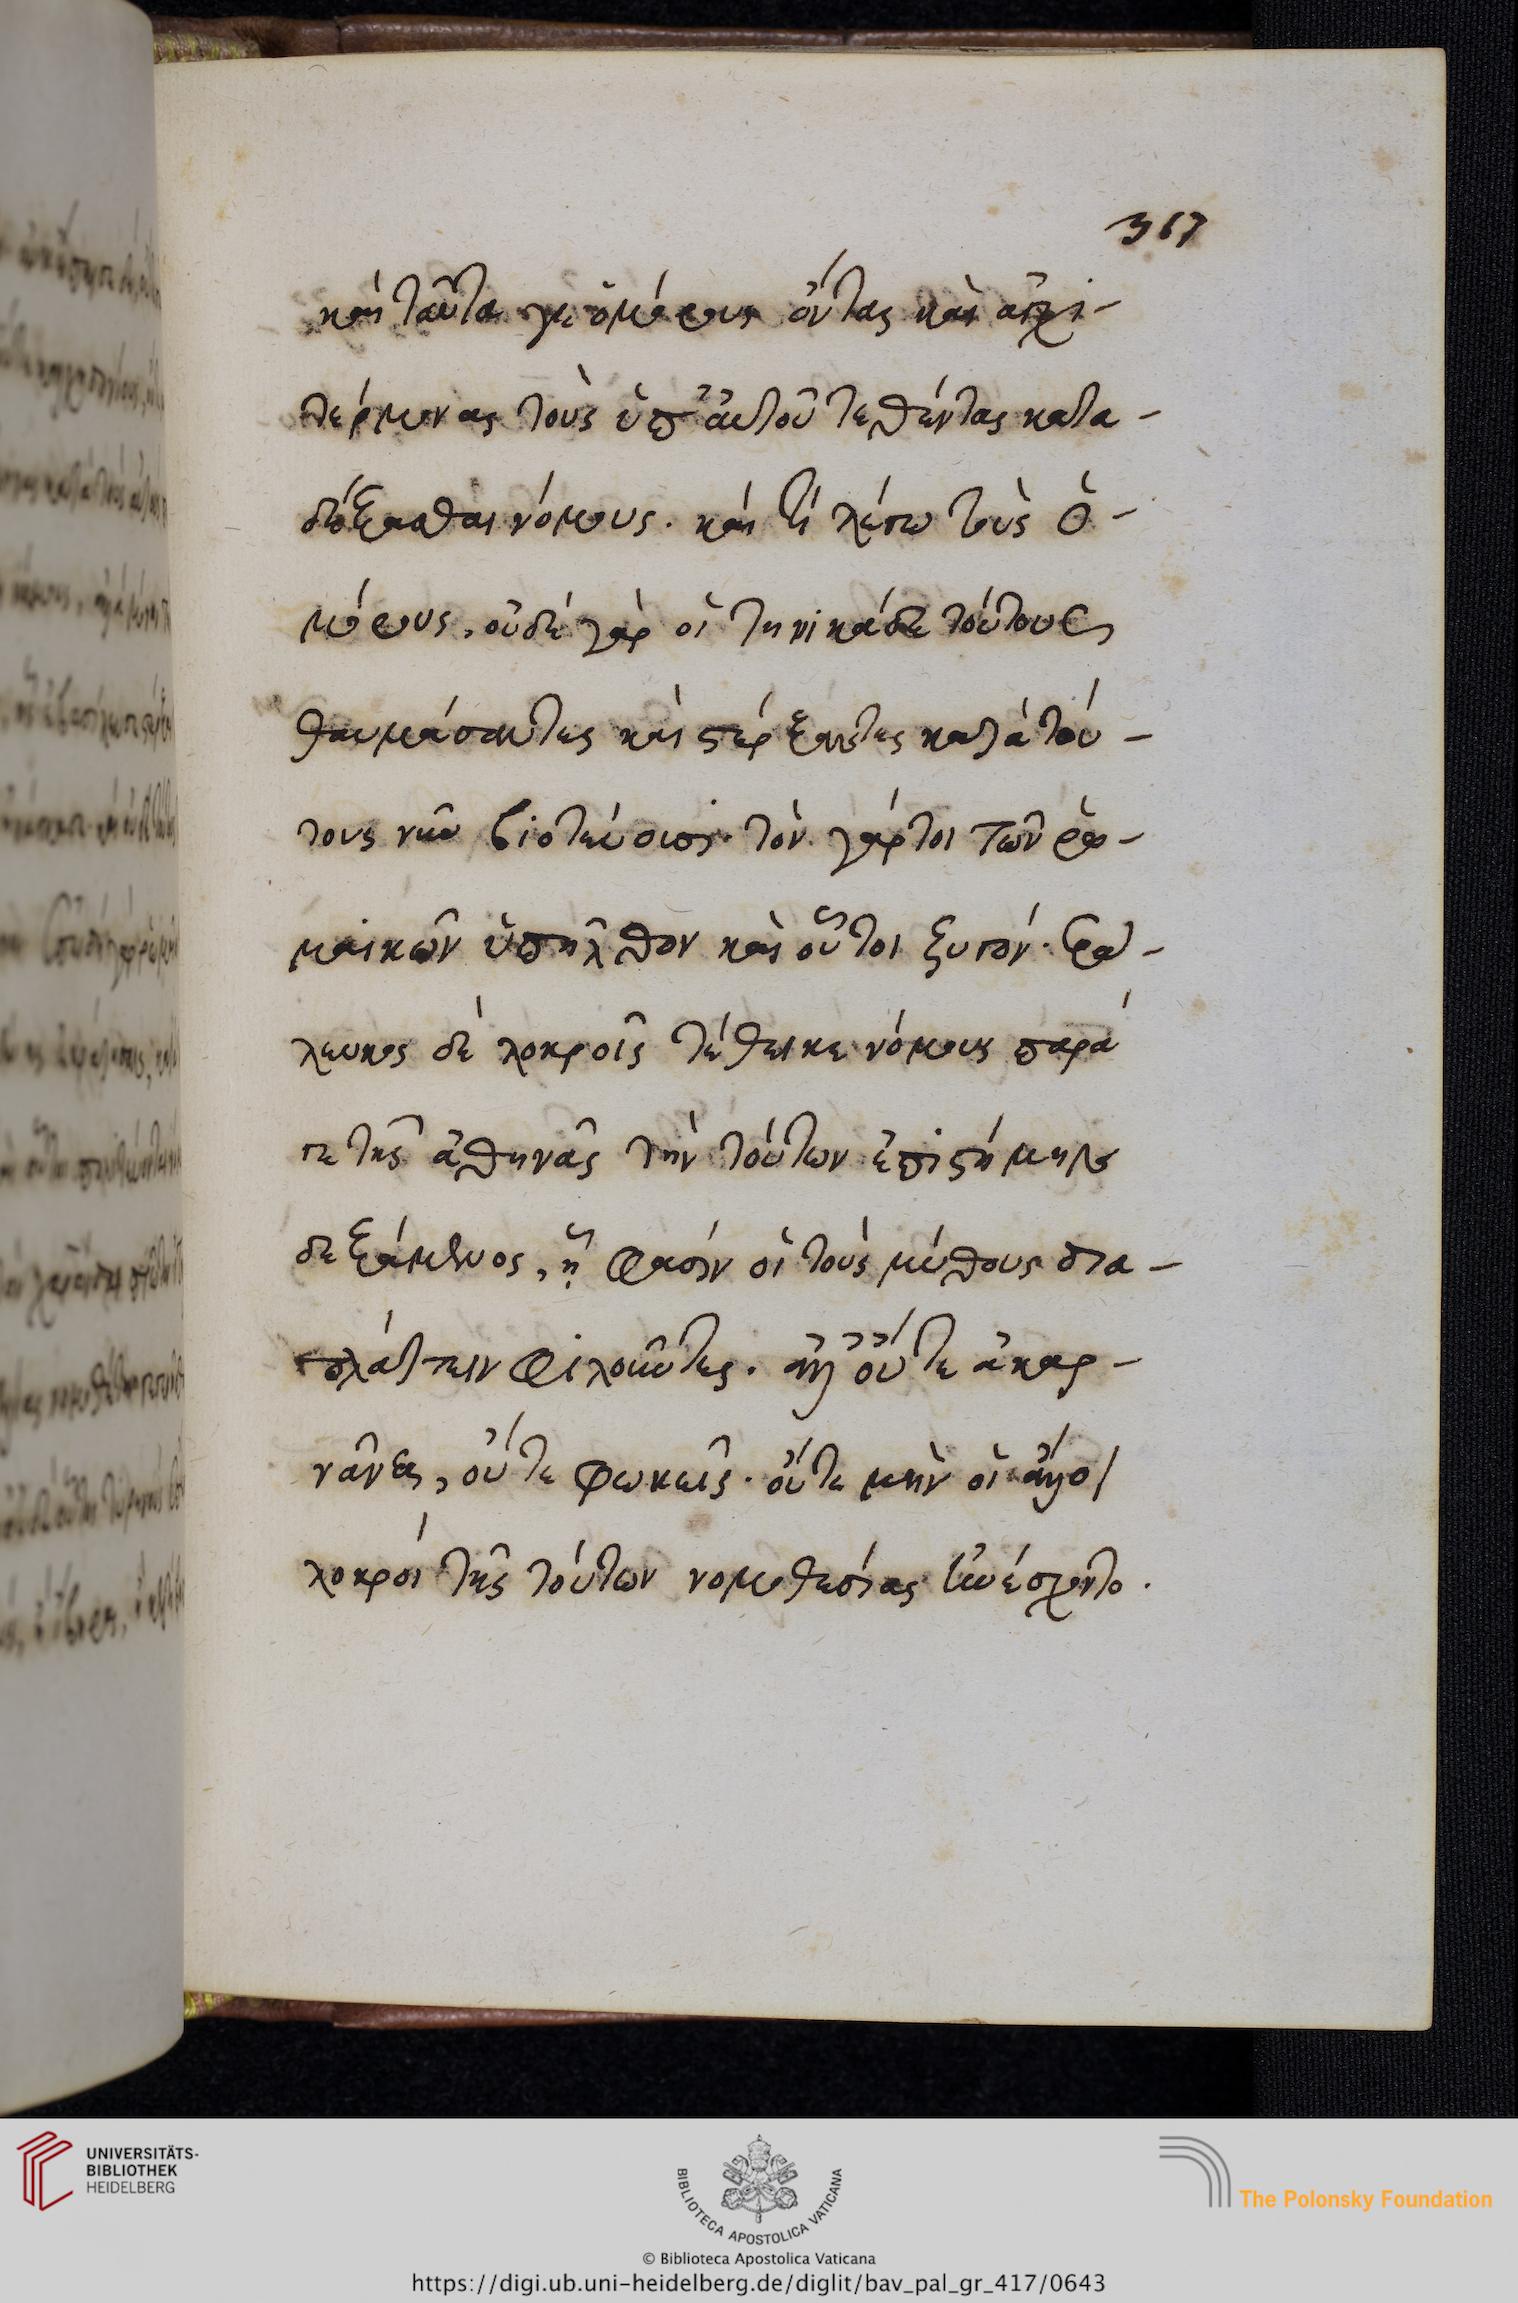 317
καὶ ταῦτα γε ὁμόρους ὄντας καὶ ἀγχι-
τέρμονας τοὺς ὑπ' αὐτοῦ τεθέντας κατα-
δέξασθαι νόμους. καὶ τί λέγω τοὺς ὁ-
μόρους, οὐδὲ γὰρ οἱ τηνικάδε τούτους
θαυμάσαντες καὶ στέρξαντες κατὰ τού-
τους νῦν βιοτεύουσι· τὸν γάρ τοι τῶν ῥω-
μαικῶν ὑπῆλθον καὶ οὗτοι ζυγόν. ζα-
λευκος δὲ λοκροῖς τέθεικε νόμους παρά
γε τῆς ἀθηνᾶς τὴν τούτων ἐπιστήμην
δεξάμενος, ᾗ φασὶν οἱ τοὺς μύθους δια-
πλάττειν φιλοῦντες. ἀλλ' οὔτε ἀκαρ-
νᾶνες, οὔτε φωκεῖς. οὔτε μὴν οἱ ἄλλοι
λοκροὶ τῆς τούτων νομοθεσίας ἠνέσχοντο.
UNIVERSITÄTS-
BIBLIOTHEK
HEIDELBERG
BIBLIOTECA APOSTOLICA VATICANA
The Polonsky Foundation
© Biblioteca Apostolica Vaticana
https://digi.ub.uni-heidelberg.de/diglit/bav_pal_gr_417/0643